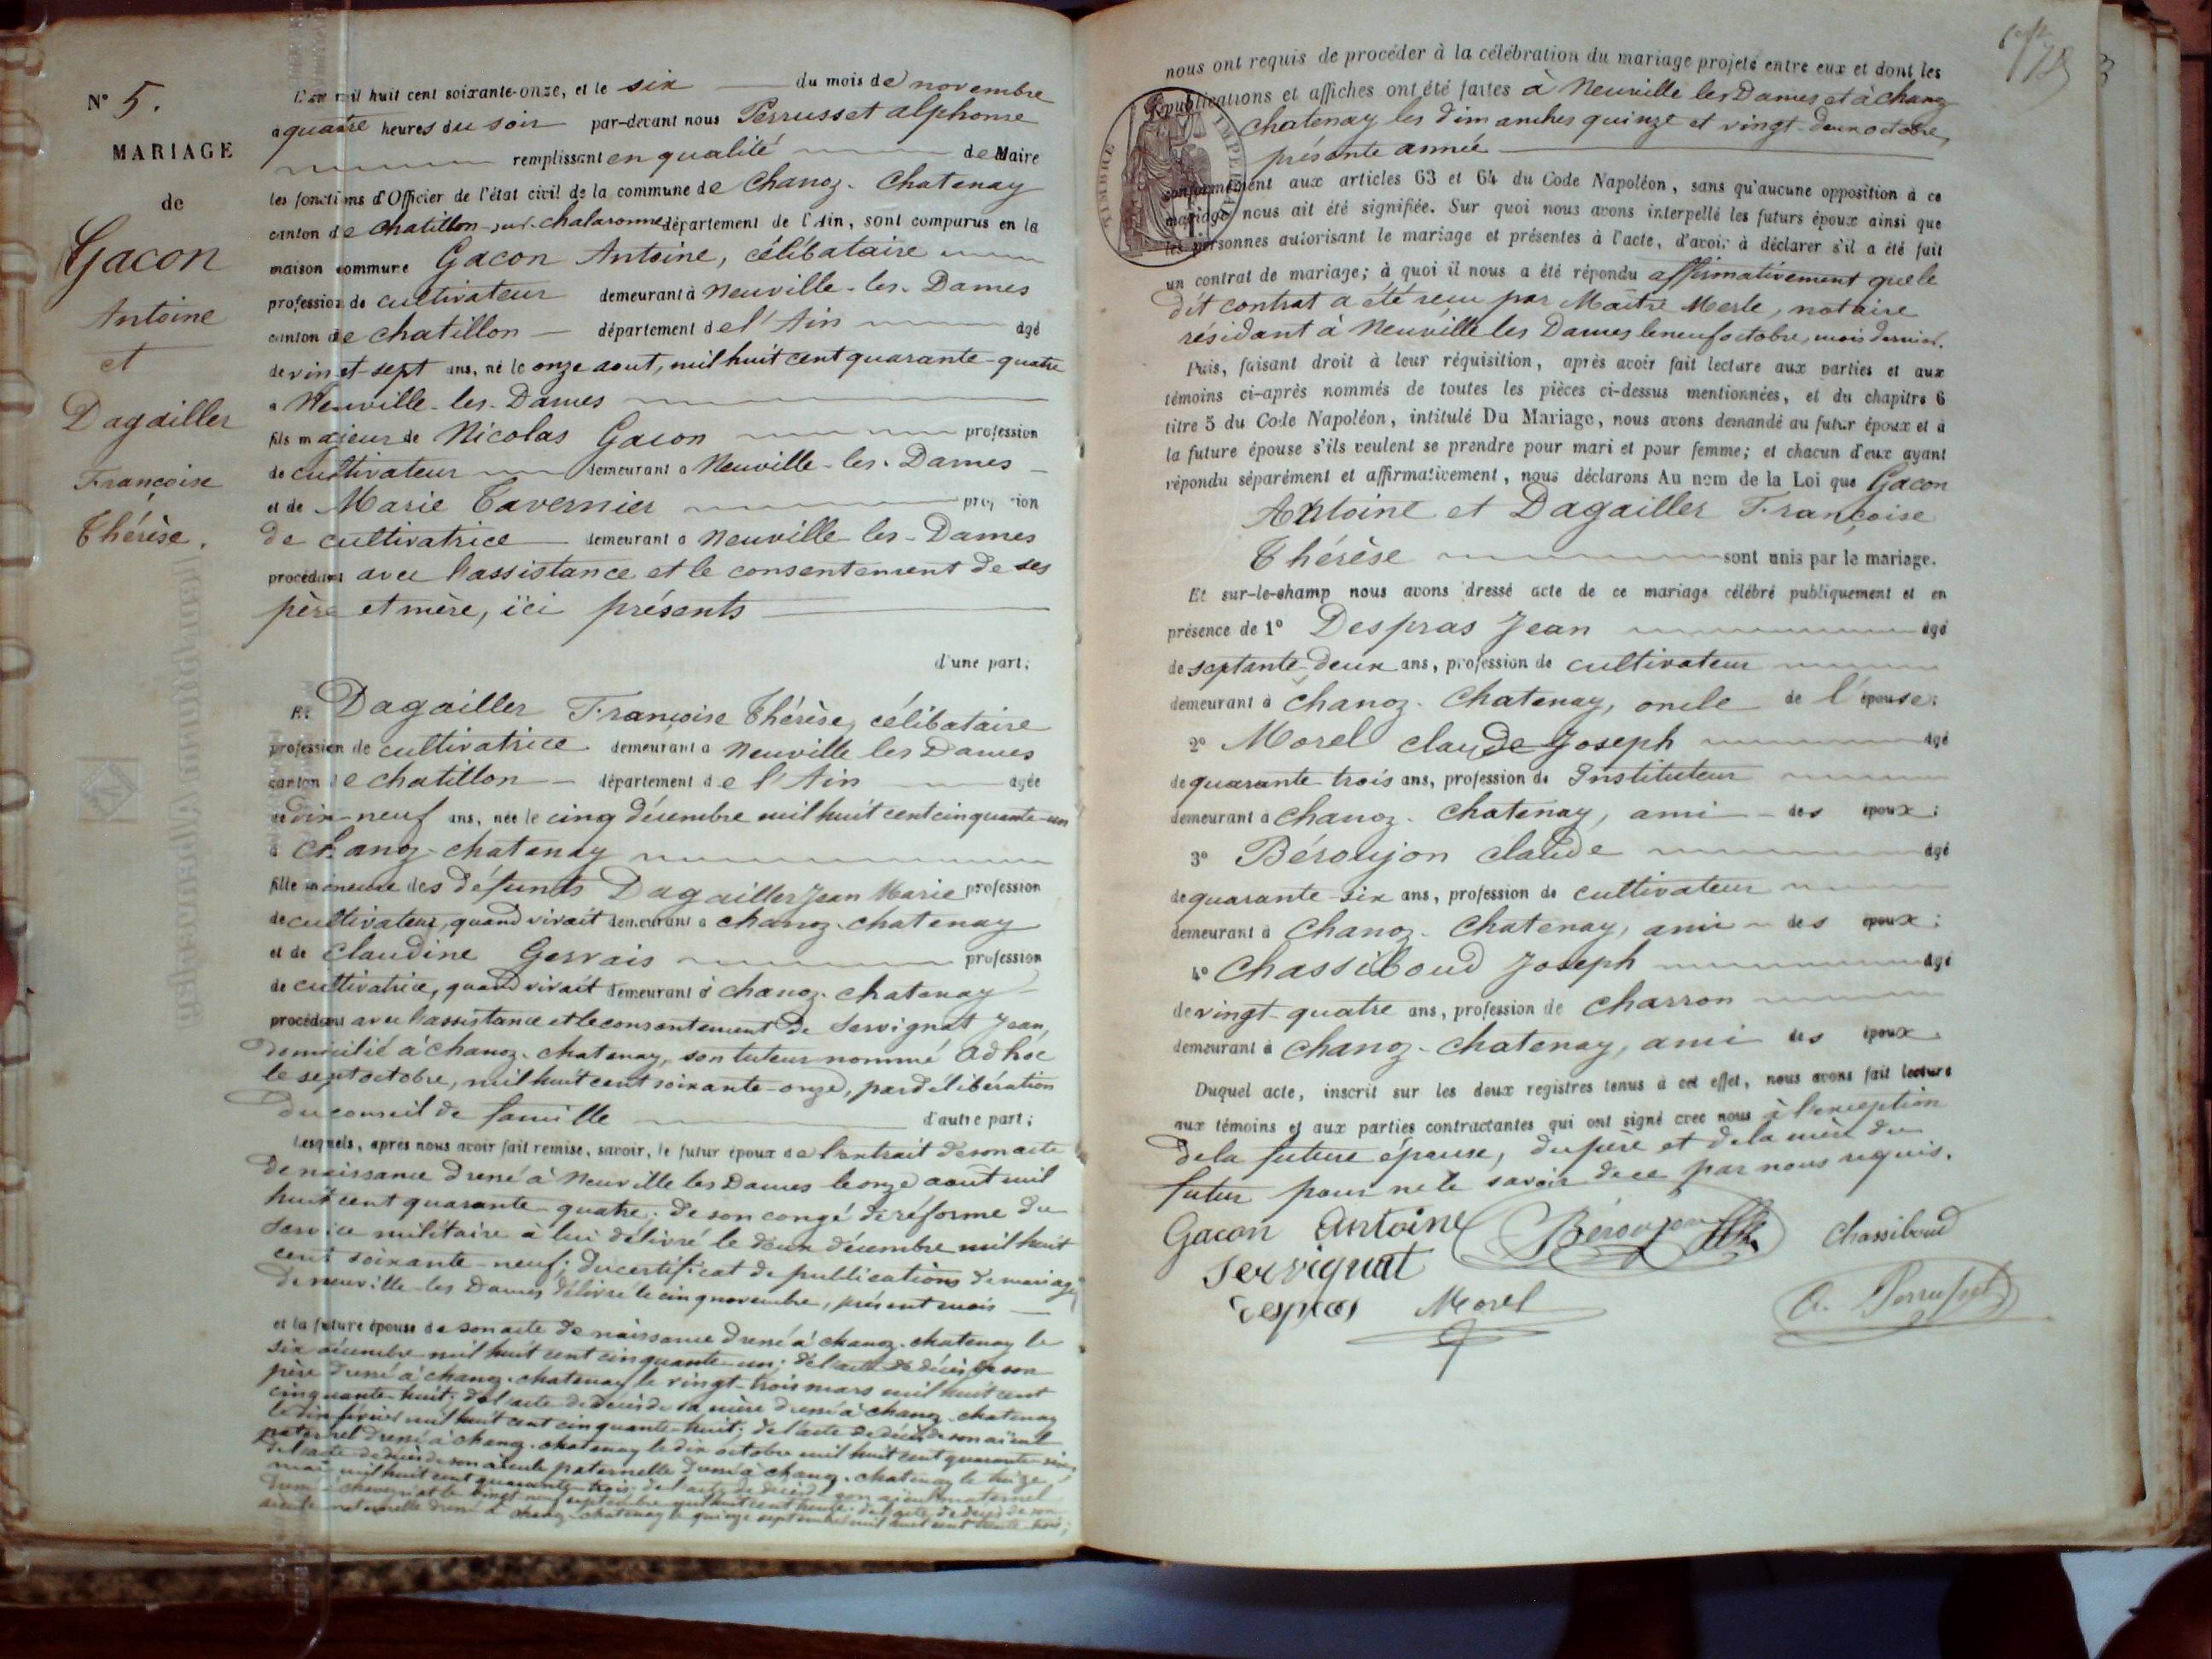 N° 5.
MARIAGE
de
Gacon
Antoine
et
Dagailler
Françoise
Thérèse.
L'an mil huit cent soixante-onze, et le six du mois de novembre
à quatre heures du soir par-devant nous Perrusset alphonse
remplissant en qualité de Maire
les fonctions d'Officier de l'état civil de la commune de Chanoz-Chatenay
canton de Chatillon-sur-Chalaronne département de l'Ain, sont comparus en la
maison commune Gacon Antoine, célibataire
profession de cultivateur demeurant à Neuville-les-Dames
canton de chatillon département de l'Ain âgé
de vin et-sept ans, né le onze aout, mil huit cent quarante-quatre
à Neuville-les-Dames
fils majeur de Nicolas Gacon profession
de cultivateur demeurant à Neuville-les-Dames
et de Marie Tavernier profession
de cultivatrice demeurant à Neuville les-Dames
procédant avec l'assistance et le consentement de ses
père et mère, ïci présents
d'une part;
Et Dagailler Françoise Thérèse, célibataire
profession de cultivatrice demeurant à Neuville les Dames
canton de chatillon département de l'Ain agée
de dix-neuf ans, née le cinq décembre mil huit cent cinquante-un
à Chanoz-chatenay
fille mineure des défunts Dagailler Jean Marie profession
de cultivateur, quand vivait demeurant à chanoz-chatenay
et de Claudine Gervais profession
de cultivatrice, quand vivait demeurant à chanoz-chatenay
procédant avec l'assistance et le consentement de Servignat Jean,
domicilié à chanoz-chatenay, son tuteur nommé ad hoc
le sept octobre, mil huit cent soixante-onze, par délibération
du conseil de famille d'autre part;
Lesquels, après nous avoir fait remise, savoir, le futur époux de l'extrait de son acte
de naissance dressé à Neuville les Dames le onze aout mil
huit cent quarante-quatre; de son congé de réforme du
service militaire à lui délivré le deux décembre mil huit
cent soixante-neuf; du certificat de publications de mariage
de neuville-les Dames délivré le cinq novembre, présent mois
et la future épouse de son acte de naissance dressé à chanoz-chatenay le
six décembre mil huit cent cinquante-un; de l'acte de décès de son
père dressé à chanoz-chatenay le vingt-trois mars mil huit cent
cinquante-huit; de l'acte de décès de sa mère dressé à chanoz-chatenay
le dix février mil huit cent cinquante-huit; de l'acte de décès de son aïeul
paternel dressé à chanoz-chatenay le dix octobre mil huit cent quarante-six;
de l'acte de décès de son aïeule paternelle dressé à chanoz-chatenay le treize
mai mil huit cent quarante-trois; de l'acte de décès de son aïeul maternel
dressé à chaveyriat le vingt neuf septembre mil huit cent trente; de l'acte de décès de son
aïeule maternelle dressé à chanoz-chatenay le quinze septembre mil huit cent trente-trois;
nous ont requis de procéder à la célébration du mariage projeté entre eux et dont les
publications et affiches ont été faites à Neuville les Dames et à Chanoz
Chatenay les dimanches quinze et vingt-deux octobre,
présente année
conformément aux articles 63 et 64 du Code Napoléon, sans qu'aucune opposition à ce
mariage nous ait été signifiée. Sur quoi nous avons interpellé les futurs époux ainsi que
les personnes autorisant le mariage et présentes à l'acte, d'avoir à déclarer s'il a été fait
un contrat de mariage; à quoi il nous a été répondu affirmativement que le
dit contrat a été reçu par Maître Merle, notaire
résidant à Neuville les Dames le neuf octobre, mois dernier.
Puis, faisant droit à leur réquisition, après avoir fait lecture aux parties et aux
témoins ci-après nommés de toutes les pièces ci-dessus mentionnées, et du chapitre 6
titre 5 du Code Napoléon, intitulé Du Mariage, nous avons demandé au futur époux et à
la future épouse s'ils veulent se prendre pour mari et pour femme; et chacun d'eux ayant
répondu séparément et affirmativement, nous déclarons Au nom de la Loi que Gacon
Antoine et Dagailler Françoise
Thérèse sont unis par le mariage.
Et sur-le-champ nous avons dressé acte de ce mariage célébré publiquement et en
présence de 1° Despras Jean âgé
de septante-deux ans, profession de cultivateur
demeurant à Chanoz-Chatenay, oncle de l'épouse;
2° Morel claude Joseph âgé
de quarante trois ans, profession de Instituteur
demeurant à Chanoz-Chatenay, ami des époux;
3° Béroujon claude âgé
de quarante-six ans, profession de cultivateur
demeurant à Chanoz-Chatenay, ami des époux;
4° Chassiboud Joseph âgé
de vingt-quatre ans, profession de charron
demeurant à Chanoz-Chatenay, ami des époux.
Duquel acte, inscrit sur les deux registres tenus à cet effet, nous avons fait lecture
aux témoins et aux parties contractantes qui ont signé avec nous à l'exception
de la future épouse, du père et de la mère du
futur pour ne le savoir de ce par nous requis.
Gacon Antoine Béroujon Chassiboud
Servignat
Despras Morel A. Perrusset
TIMBRE IMPERIAL